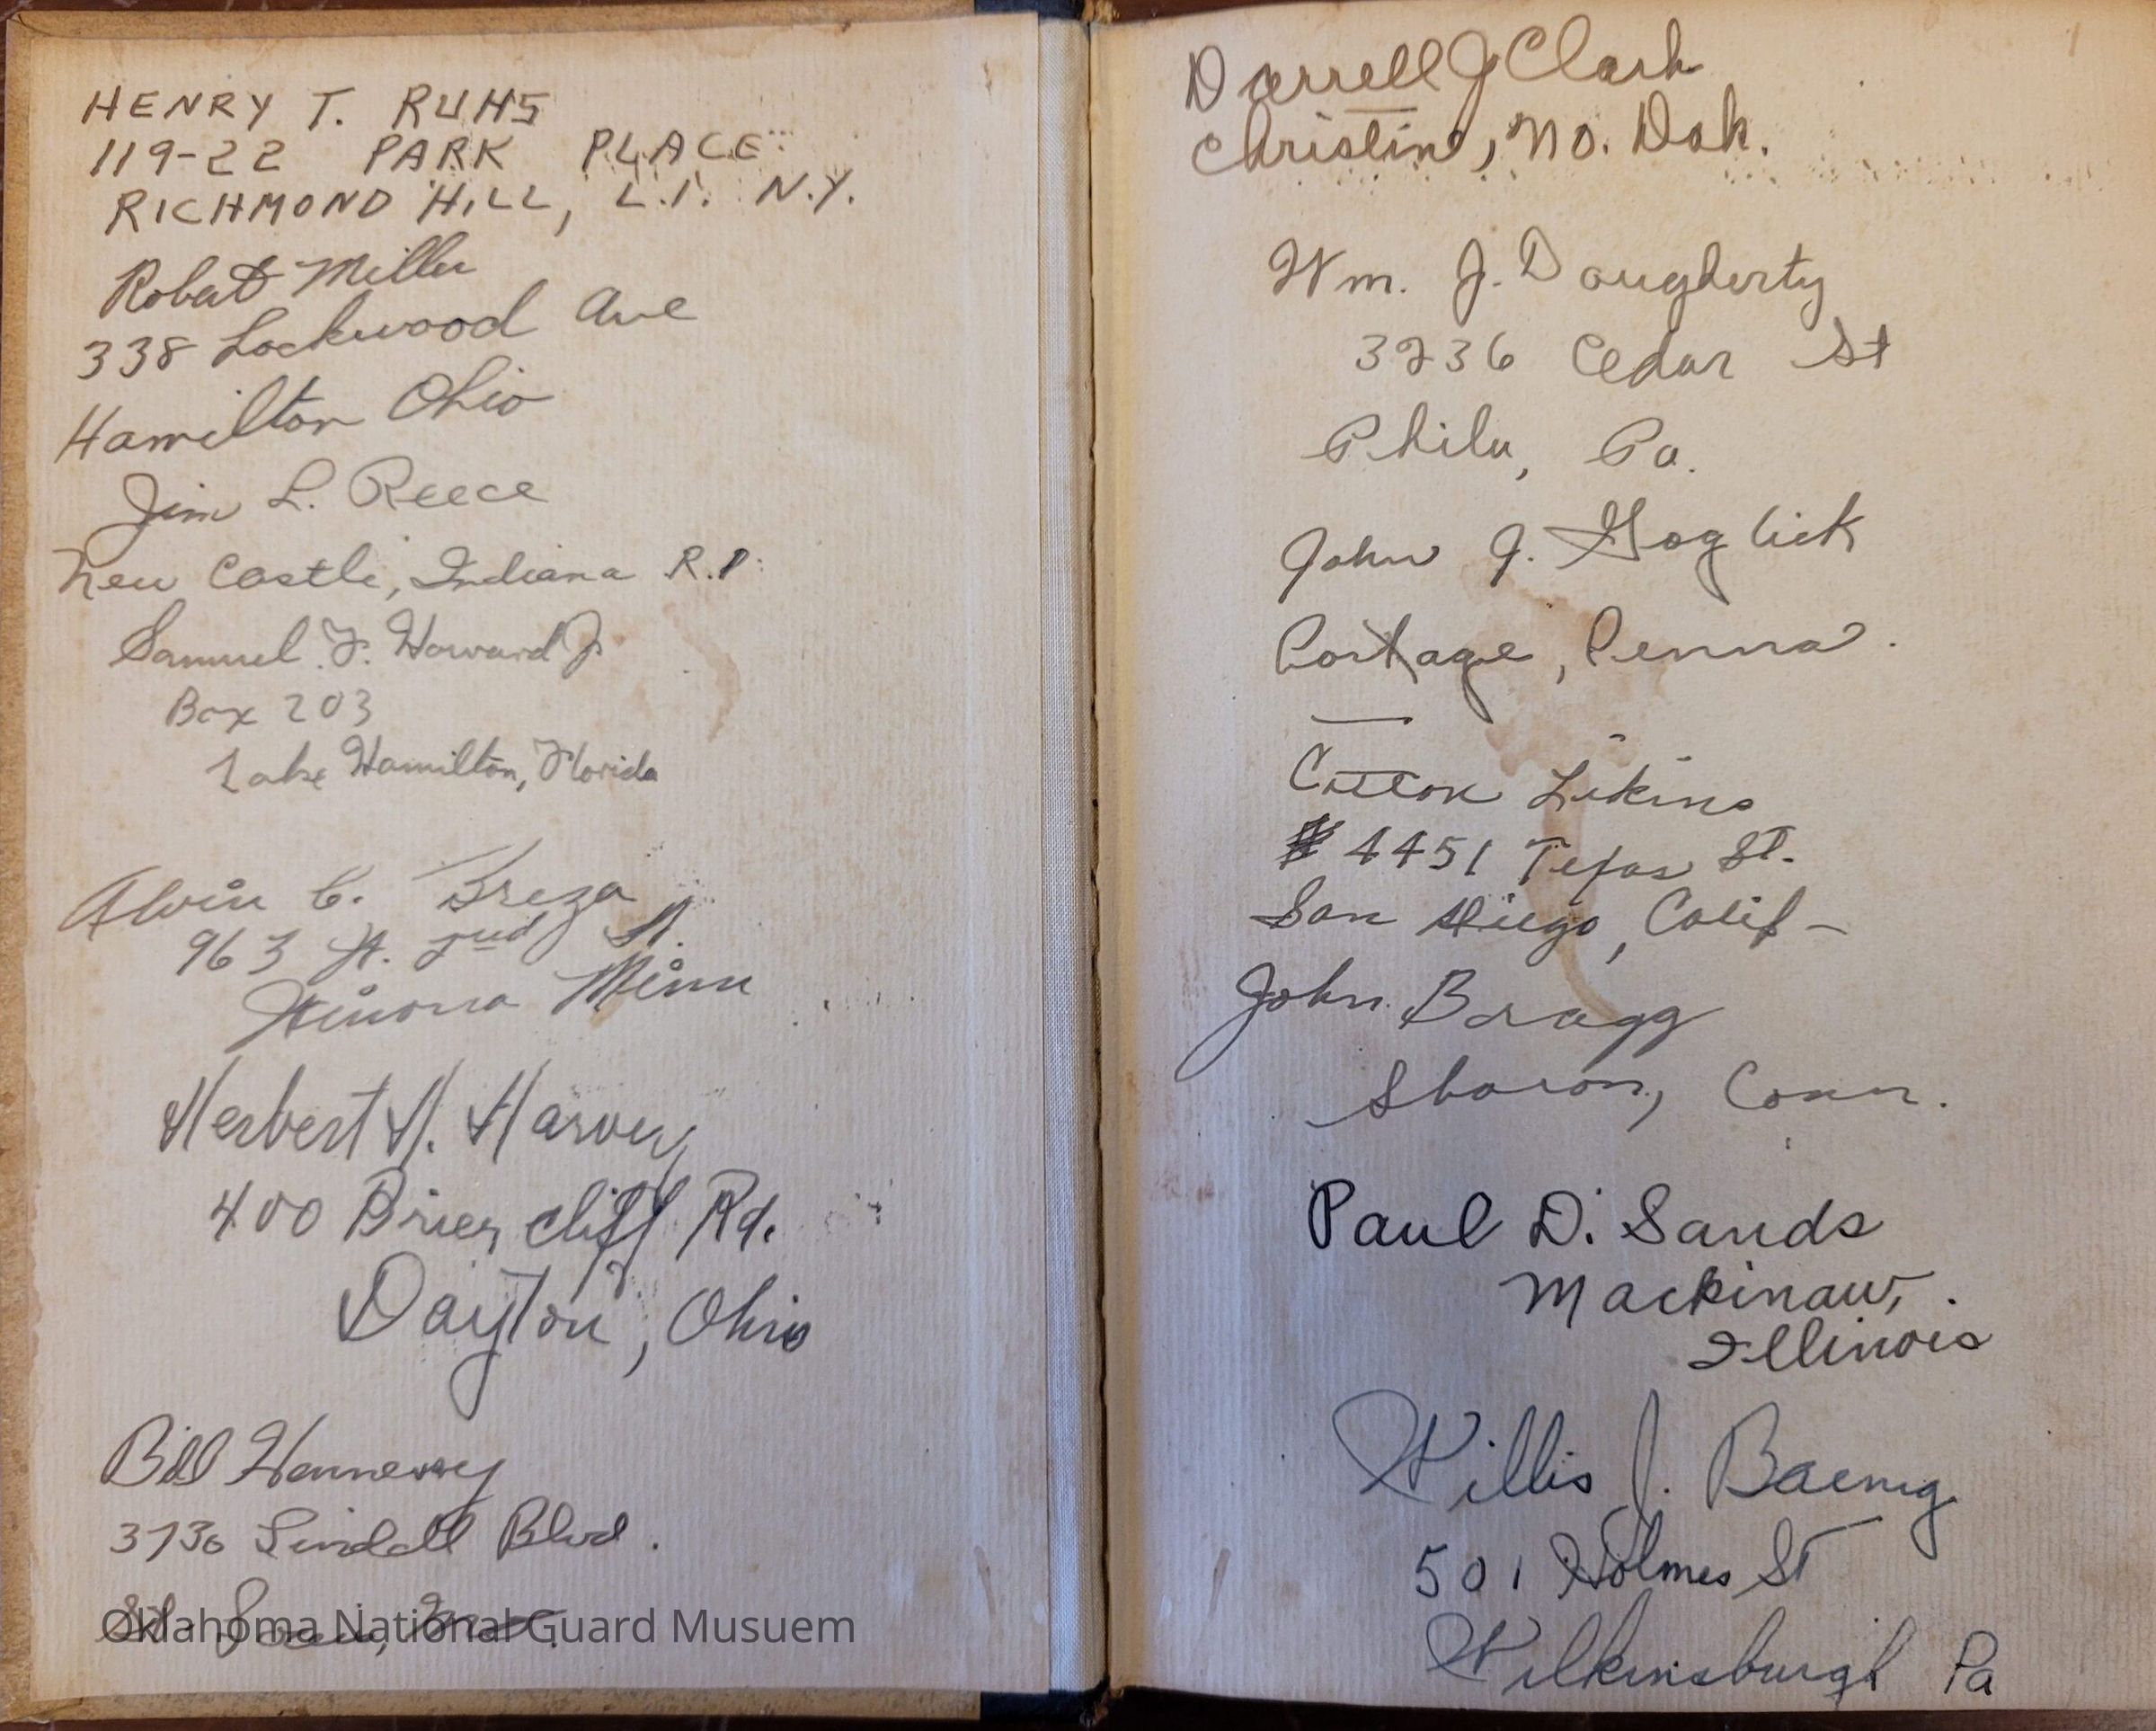 HENRY T. RUHS
119-22 PARK PLACE
RICHMOND HILL, L.I. N.Y.
Robert Miller
338 Lockwood Ave
Hamilton Ohio
Jim L. Reece
New Castle, Indiana R.
Samuel F. Howard Jr
Box 203
Lake Hamilton, Florida
Alvin C. Breza
963 W. 2nd St.
Winona Minn
Herbert H. Harvey
400 Brier cliff Rd.
Dayton, Ohio
Bill Hennessy
3730 Lindell Blvd.
St. Louis,
Oklahoma National Guard Musuem
Darrell J Clark
Christine, No. Dak.
Wm. J. Dougherty
3236 Cedar St
Phila, Pa.
John J. Goglick
Portage, Penna.
Likins
4451 Texas St.
San Diego, Calif-
John Bragg
Sharon, Conn.
Paul D. Sands
Mackinaw,
Illinois
Willis J. Baenig
501 Holmes St
Wilkinsburgh Pa